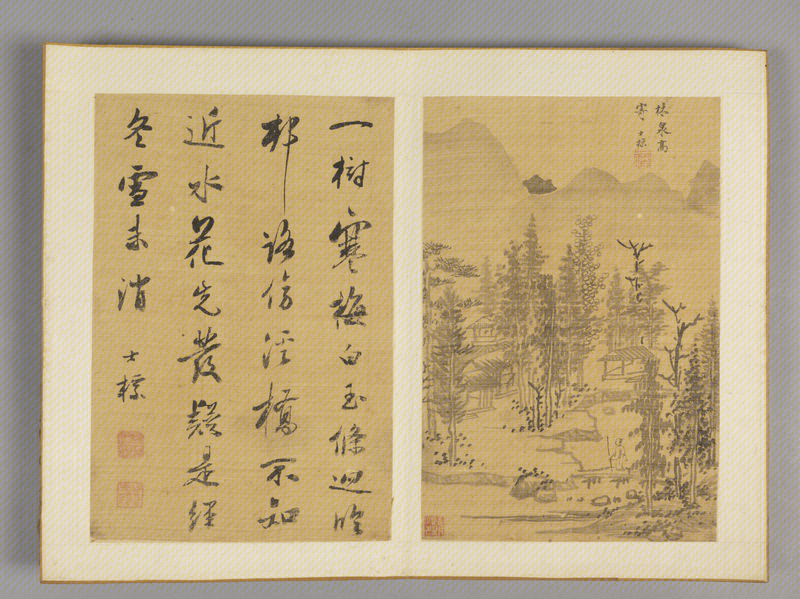 林泉高
寄 士標
一樹寒梅白玉條迥臨
邨路傍溪橋不知
近水花先發疑是經
冬雪未消 士標